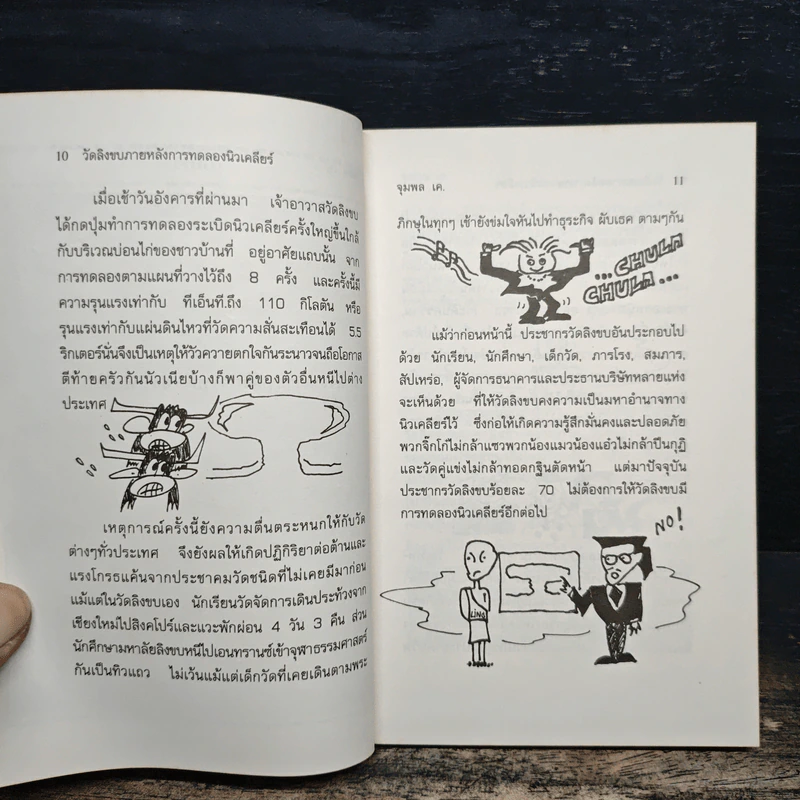 10 วัดลิงขบภายหลังการทดลองนิวเคลียร์
เมื่อเช้าวันอังคารที่ผ่านมา เจ้าอาวาสวัดลิงขบ
ได้กดปุ่มทำการทดลองระเบิดนิวเคลียร์ครั้งใหญ่ขึ้นใกล้
กับบริเวณบ่อนไก่ของชาวบ้านที่ อยู่อาศัยแถบนั้น จาก
การทดลองตามแผนที่วางไว้ถึง 8 ครั้ง และครั้งนี้มี
ความรุนแรงเท่ากับ ทีเอ็นที.ถึง 110 กิโลตัน หรือ
รุนแรงเท่ากับแผ่นดินไหวที่วัดความสั่นสะเทือนได้ 5.5
ริกเตอร์นั่นจึงเป็นเหตุให้วัวควายตกใจกันระนาวจนถือโอกาส
ตีท้ายครัวกันนัวเนียบ้างก็พาคู่ของตัวอื่นหนีไปต่าง
ประเทศ
เหตุการณ์ครั้งนี้ยังความตื่นตระหนกให้กับวัด
ต่างๆทั่วประเทศ จึงยังผลให้เกิดปฏิกิริยาต่อต้านและ
แรงโกรธแค้นจากประชาคมวัดชนิดที่ไม่เคยมีมาก่อน
แม้แต่ในวัดลิงขบเอง นักเรียนวัดจัดการเดินประท้วงจาก
เชียงใหม่ไปสิงคโปร์และแวะพักผ่อน 4 วัน 3 คืน ส่วน
นักศึกษามหาลัยลิงขบหนีไปเอนทรานซ์เข้าจุฬาธรรมศาสตร์
กันเป็นทิวแถว ไม่เว้นแม้แต่เด็กวัดที่เคยเดินตามพระ
จุมพล เค. 11
ภิกษุในทุกๆ เช้ายังข่มใจหันไปทำธุระกิจ ผับเธค ตามๆกัน
...CHULA
CHULA...
แม้ว่าก่อนหน้านี้ ประชากรวัดลิงขบอันประกอบไป
ด้วย นักเรียน, นักศึกษา, เด็กวัด, ภารโรง, สมภาร,
สัปเหร่อ, ผู้จัดการธนาคารและประธานบริษัทหลายแห่ง
จะเห็นด้วย ที่ให้วัดลิงขบคงความเป็นมหาอำนาจทาง
นิวเคลียร์ไว้ ซึ่งก่อให้เกิดความรู้สึกมั่นคงและปลอดภัย
พวกจิ๊กโก๋ไม่กล้าแซวพวกน้องแมวน้องแอ๋วไม่กล้าปีนกุฏิ
และวัดคู่แข่งไม่กล้าทอดกฐินตัดหน้า แต่มาปัจจุบัน
ประชากรวัดลิงขบร้อยละ 70 ไม่ต้องการให้วัดลิงขบมี
การทดลองนิวเคลียร์อีกต่อไป
NO!
LING